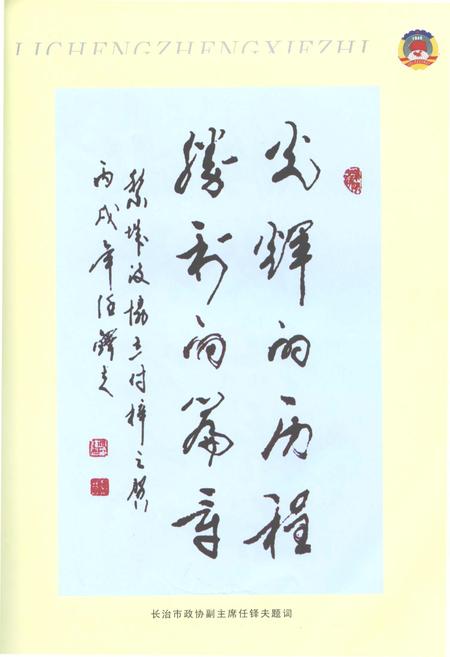 LICHENGZHENGXIEZHI
光辉的历程
胜利的篇章
黎城政协志付梓之贺
丙戌年任铎夫
长治市政协副主席任铎夫题词